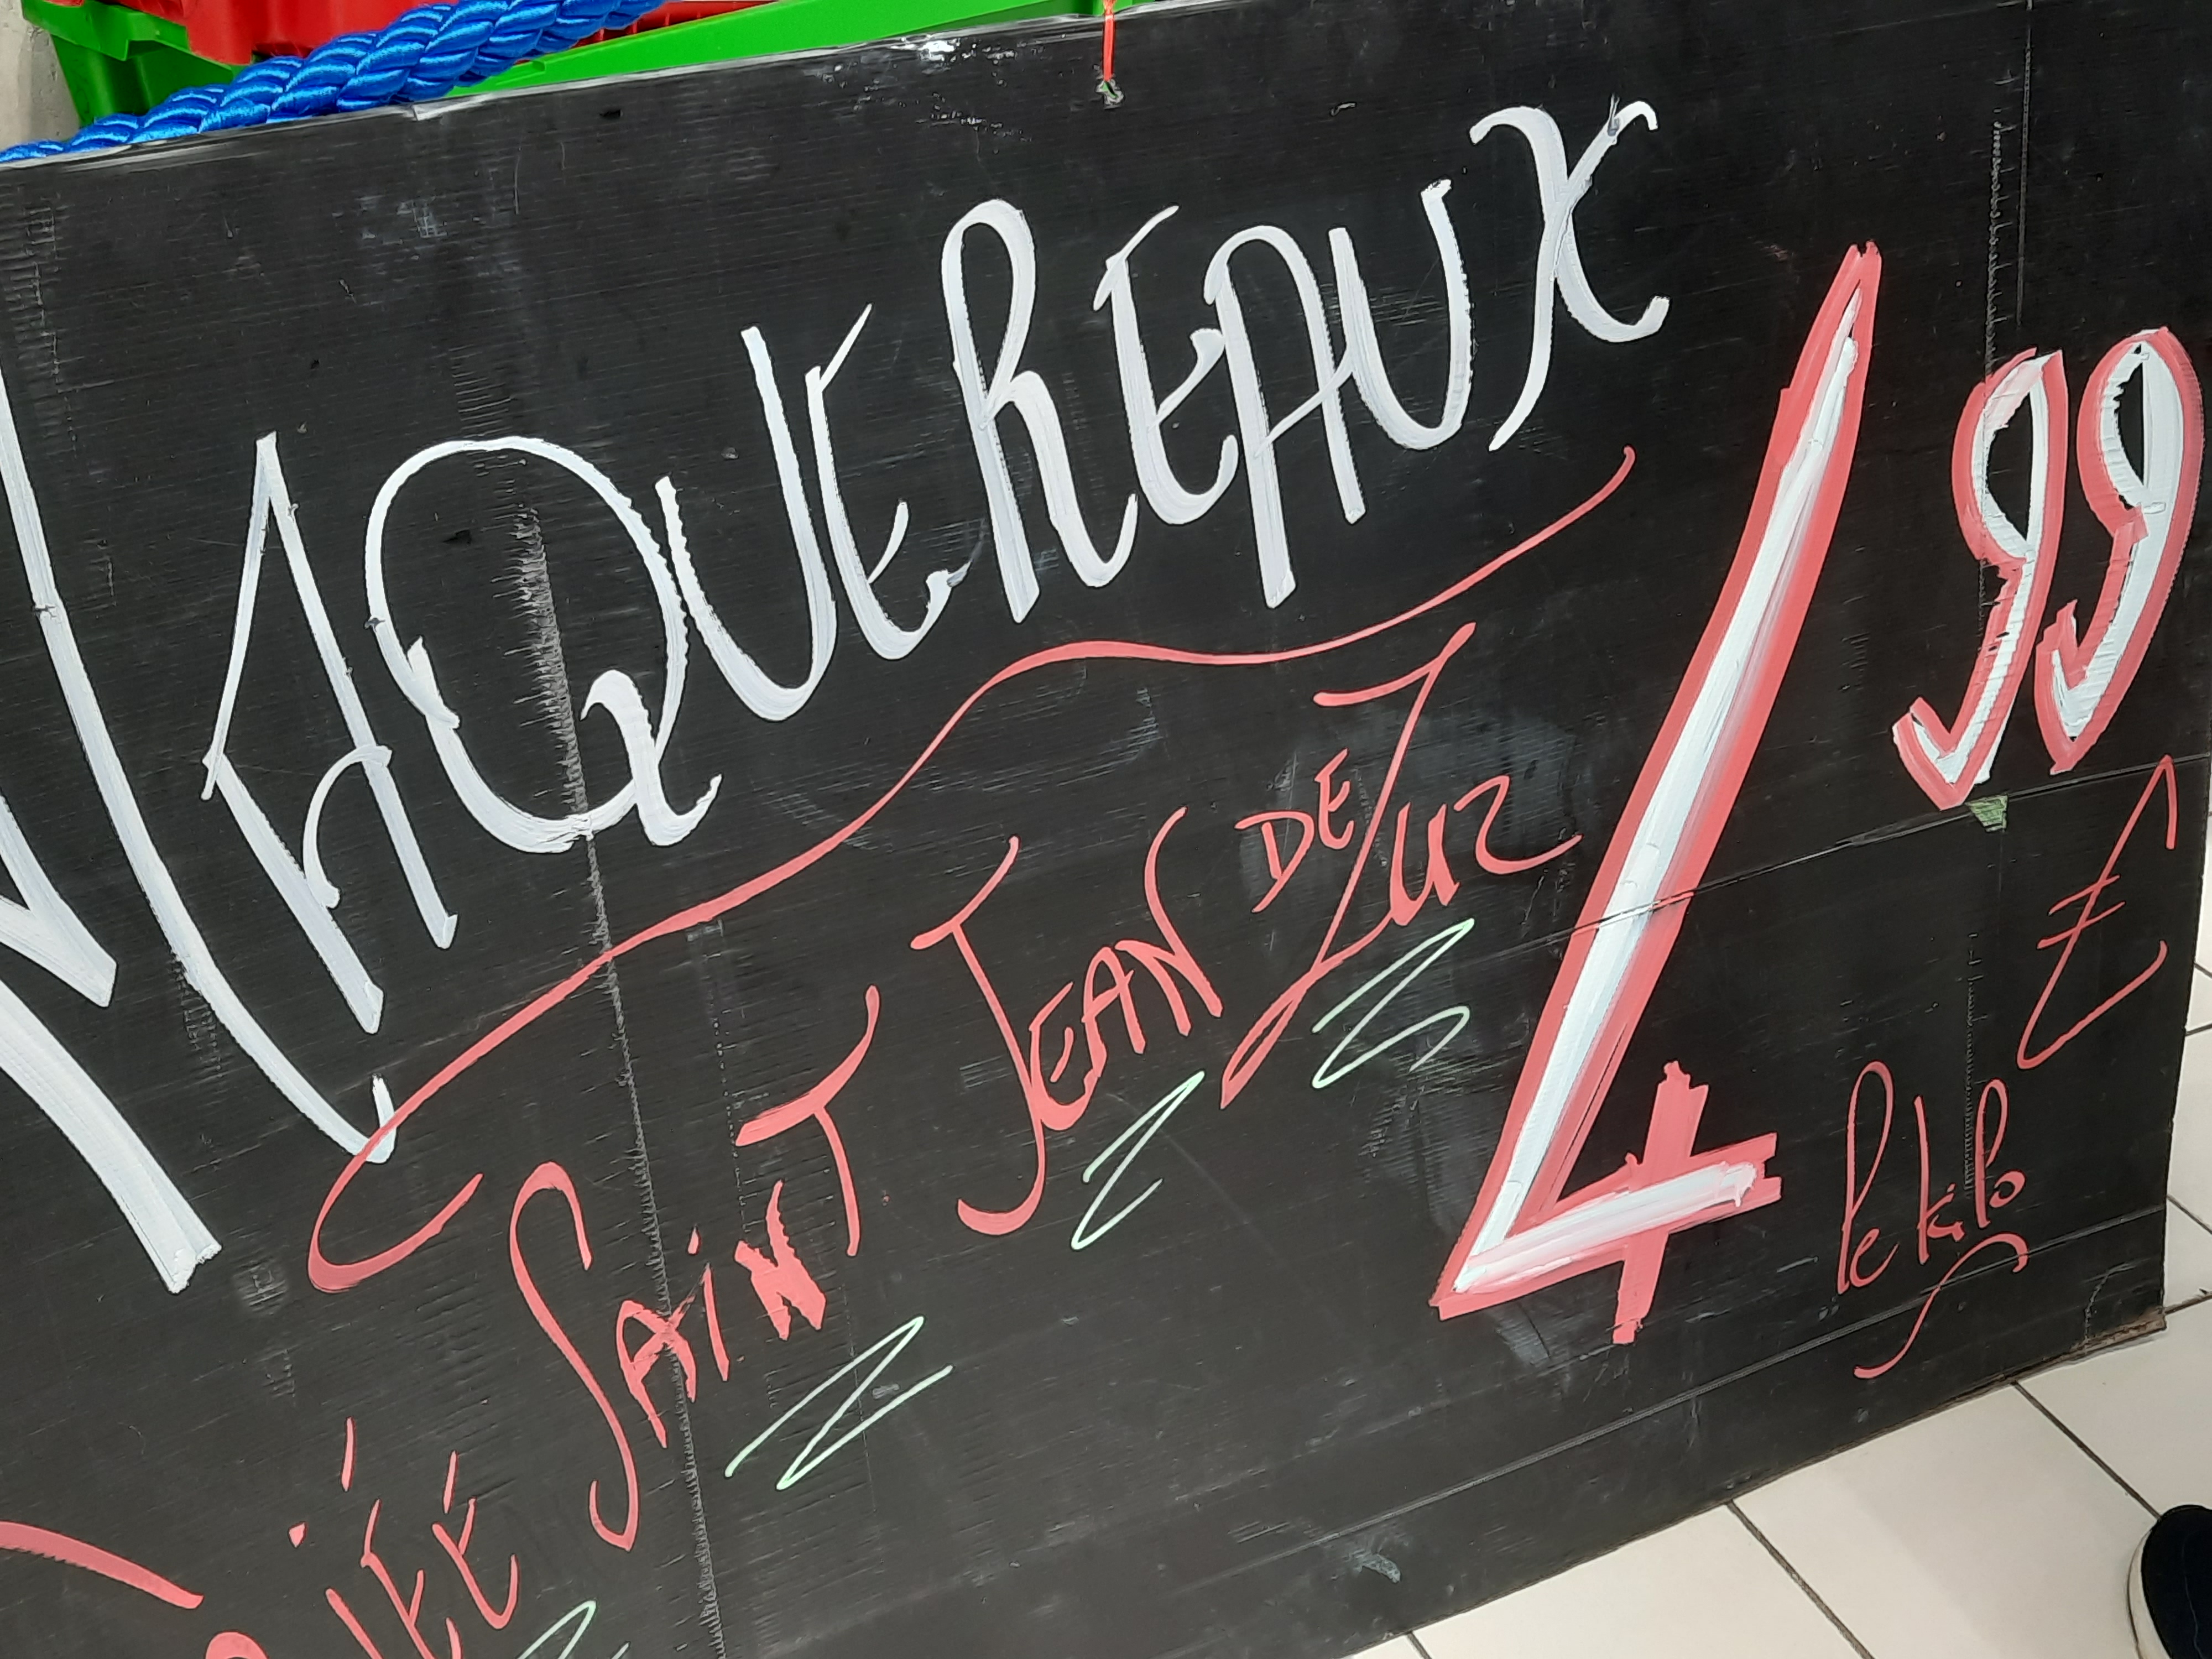 MAQUEREAUX
SAiNT JEAN DE LUZ
4 99 €
le kilo